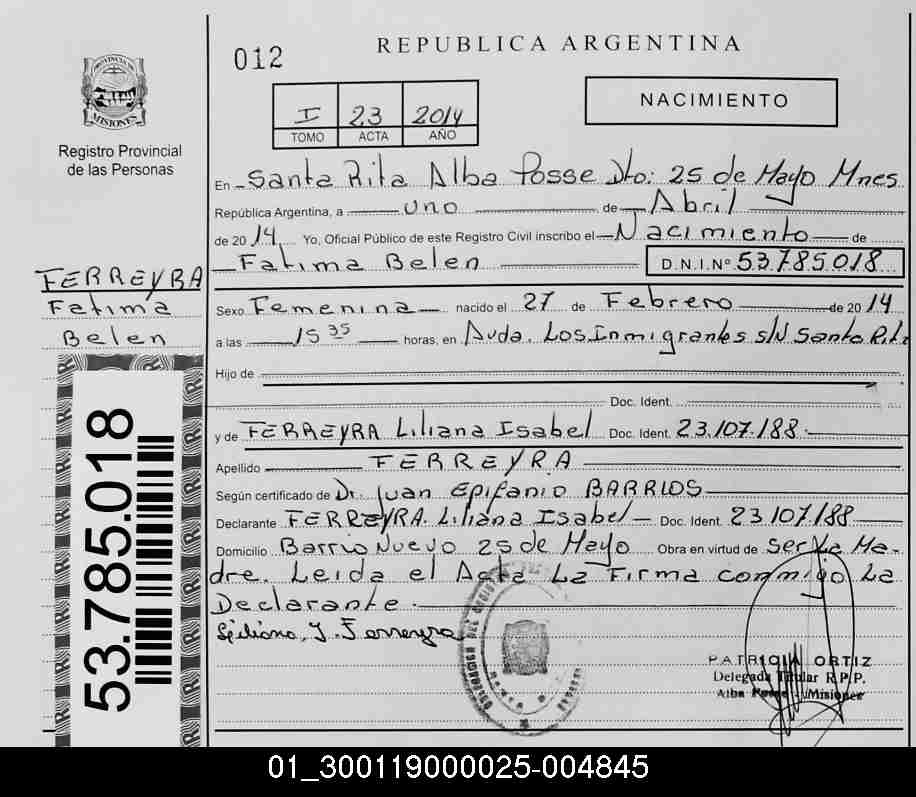 012
REPUBLICA ARGENTINA
PROVINCIA DE
MISIONES
Registro Provincial
de las Personas
I 23 2014
TOMO ACTA AÑO
NACIMIENTO
En Santa Rita Alba Posse Dto: 25 de Mayo Mnes
República Argentina, a uno de Abril
de 2014 Yo, Oficial Público de este Registro Civil inscribo el Nacimiento de
Fatima Belen D.N.I.Nº 53.785.018
FERREYRA
Fatima
Belen
Sexo Femenina nacido el 27 de Febrero de 2014
a las 15 35 horas, en Avda. Los Inmigrantes s/N Santa Rita
Hijo de
Doc. Ident.
y de FERREYRA Liliana Isabel Doc. Ident. 23.107.188
Apellido FERREYRA
Según certificado de Dr. Juan Epifanio BARRIOS
Declarante FERREYRA. Liliana Isabel Doc. Ident. 23107188
Domicilio Barrio Nuevo 25 de Mayo Obra en virtud de ser La Ma-
dre. Leida el Acta La Firma conmigo La
Declarante.
Liliana I. Ferreyra
53.785.018
PATRICIA ORTIZ
Delegada Titular R.P.P.
Alba Posse - Misiones
01_300119000025-004845